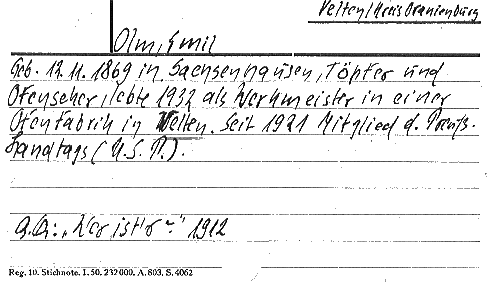 Velten/Kreis Oranienburg
Olm, Emil
Geb. 12.11.1869 in Sachsenhausen, Töpfer und
Ofensetzer, lebte 1932 als Werkmeister in einer
Ofenfabrik in Velten. Seit 1921 Mitglied d. Preuß.
Landtags (U.S.P.).
a.a.: „Wer ist's?" 1912
Reg. 10. Stichnote. I. 50. 232000. A. 803. S. 4062